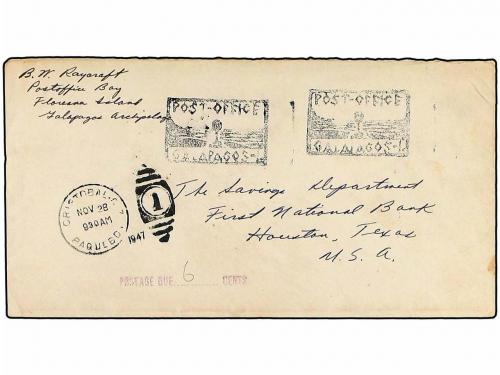 B. W. Raycraft
Postoffice Bay
Floreana Island
Galapagos Archipelago
POST-OFFICE
GALAPAGOS-I.
POST-OFFICE
GALAPAGOS-I.
CRISTOBAL, C.Z.
NOV 28
930 AM
PAQUEBOT
1947
1
The Savings Department
First National Bank
Houston, Texas
U. S. A.
POSTAGE DUE 6 CENTS